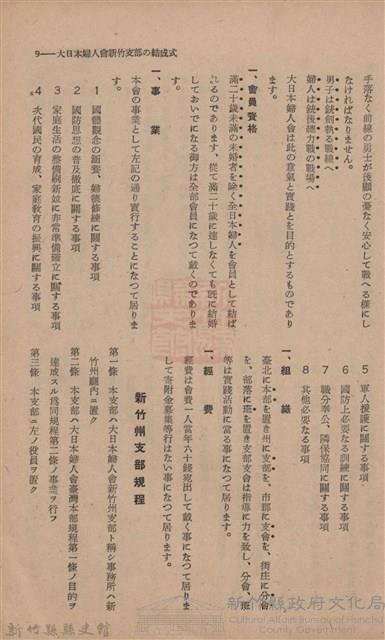 9——大日本婦人會新竹支部の結成式
手落なく前線の勇士が後顧の憂なく安心して戰へる樣にし
なければなりません。
男子は銃劍執る戰線へ
婦人は銃後總力戰の職場へ
大日本婦人會は此の意氣と實踐とを目的とするものであり
ます。
一、會員資格
滿二十歲未滿の未婚者を除く全日本婦人を會員として結ば
れるのであります、從て滿二十歲に達しなくても既に結婚
しておいでになる御方は全部會員になつて戴くのでありま
す。
一、事業
本會の事業として左記の通り實行することになつて居りま
す。
1 國體觀念の涵養、婦德修練に關する事項
2 國防思想の普及徹底に關する事項
3 家庭生活の整備刷新並に非常準備確立に關する事項
4 次代國民の育成、家庭教育の振興に關する事項
5 軍人援護に關する事項
6 國防上必要なる訓練に關する事項
7 職分奉公、隣保協同に關する事項
8 其他必要なる事項
一、組織
臺北に本部を置き州に支部を、市郡に支會を、街庄に分會
を、部落に班を置き支部支會は指導に力を致し、分會、班
等は實踐活動に當る事になつて居ります。
一、經費
經費は會費一人當年六十錢宛出して戴く事になつて居りま
して寄附金募集等行はない事になつて居ります。
新竹州支部規程
第一條 本支部ハ大日本婦人會新竹州支部ト稱シ事務所ハ新
竹州廳內ニ置ク
第二條 本支部ハ大日本婦人會臺灣本部規程第一條ノ目的ヲ
達成スル爲同規程第二條ノ事業ヲ行フ
第三條 本支部ニ左ノ役員ヲ置ク
新竹縣縣史館
新竹縣政府文化局
Cultural Affairs Bureau of Hsinchu
County Government